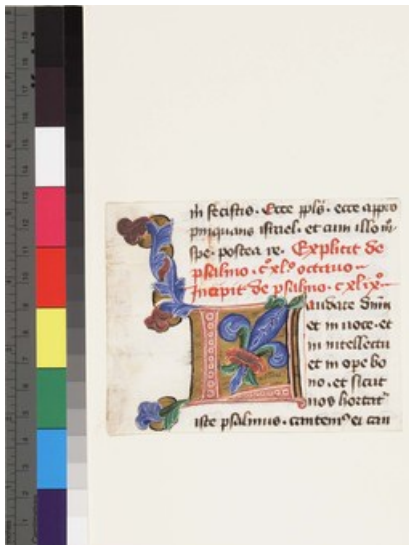 in ſecꝉſto. Ecce ppl̄s. ecce appro
pinquans israel. et cum illo in
spe. postea re. Explicit de
psalmo. c°xl° octauo
Incipit de psalmo. c°xl ix°
audate dn̄m
et in uoce. et
in intellectu
et in ope bo
no. et sicut
nos hortat᷑
iste psalmus. cantem⁹ ei can